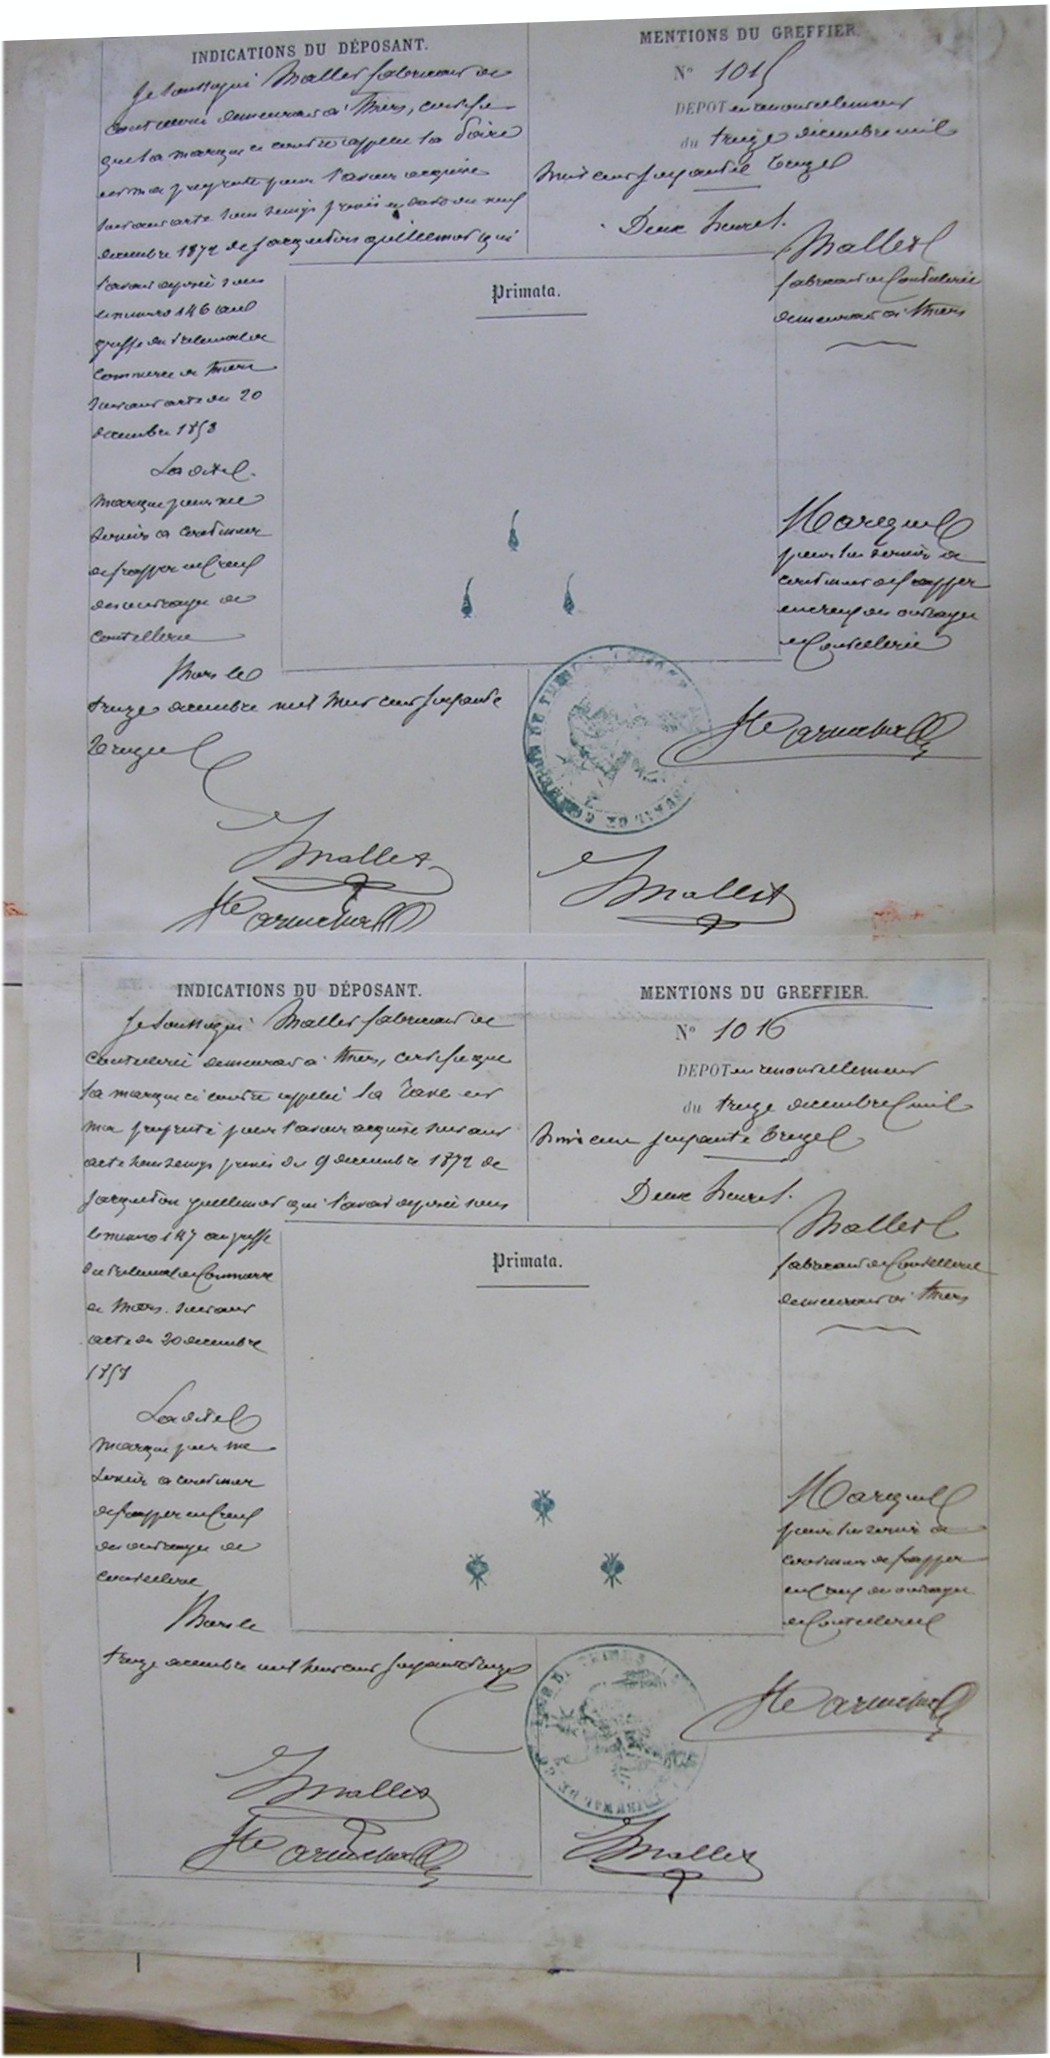 INDICATIONS DU DÉPOSANT.
Je soussigné Mallet fabricant de
coutellerie demeurant à Thiers, certifie
que la marque ci contre appellée la Poire
est ma propriété pour l'avoir acquise
suivant acte sous seings privés en date du neuf
decembre 1872 de Jacqueton guillemot qui
l'avait déposée sous
le numero 146 au
greffe du tribunal de
commerce de Thiers
suivant acte du 20
decembre 1858
La dite
marque pour me
servir à continuer
de frapper en creux
des ouvrages de
coutellerie
Thiers le
treize decembre mil huit cent soixante
treize
Mallet
MENTIONS DU GREFFIER.
N° 1015
DEPOT en renouvellement
du treize decembre mil
huit cent soixante treize
Deux heures.
Mallet
fabricant de Coutellerie
demeurant à Thiers
Primata.
Marque
pour lui servir à
continuer de frapper
en creux des ouvrages
de Coutellerie
TRIBUNAL DE COMMERCE DE THIERS
Mallet
INDICATIONS DU DÉPOSANT.
Je soussigné Mallet fabricant de
coutellerie demeurant à Thiers, certifie que
la marque ci contre appellée la Rave est
ma propriété pour l'avoir acquise suivant
acte sous seings privés du 9 decembre 1872 de
Jacqueton guillemot qui l'avait déposée sous
le numero 147 au greffe
du tribunal de Commerce
de Thiers suivant
acte du 20 decembre
1858
La dite
marque pour me
servir à continuer
de frapper en creux
des ouvrages de
coutellerie
Thiers le
treize decembre mil huit cent soixante treize
Mallet
MENTIONS DU GREFFIER.
N° 1016
DEPOT en renouvellement
du treize decembre mil
huit cent soixante treize
Deux heures.
Mallet
fabricant de Coutellerie
demeurant à Thiers
Primata.
Marque
pour lui servir à
continuer de frapper
en creux des ouvrages
de Coutellerie
Mallet